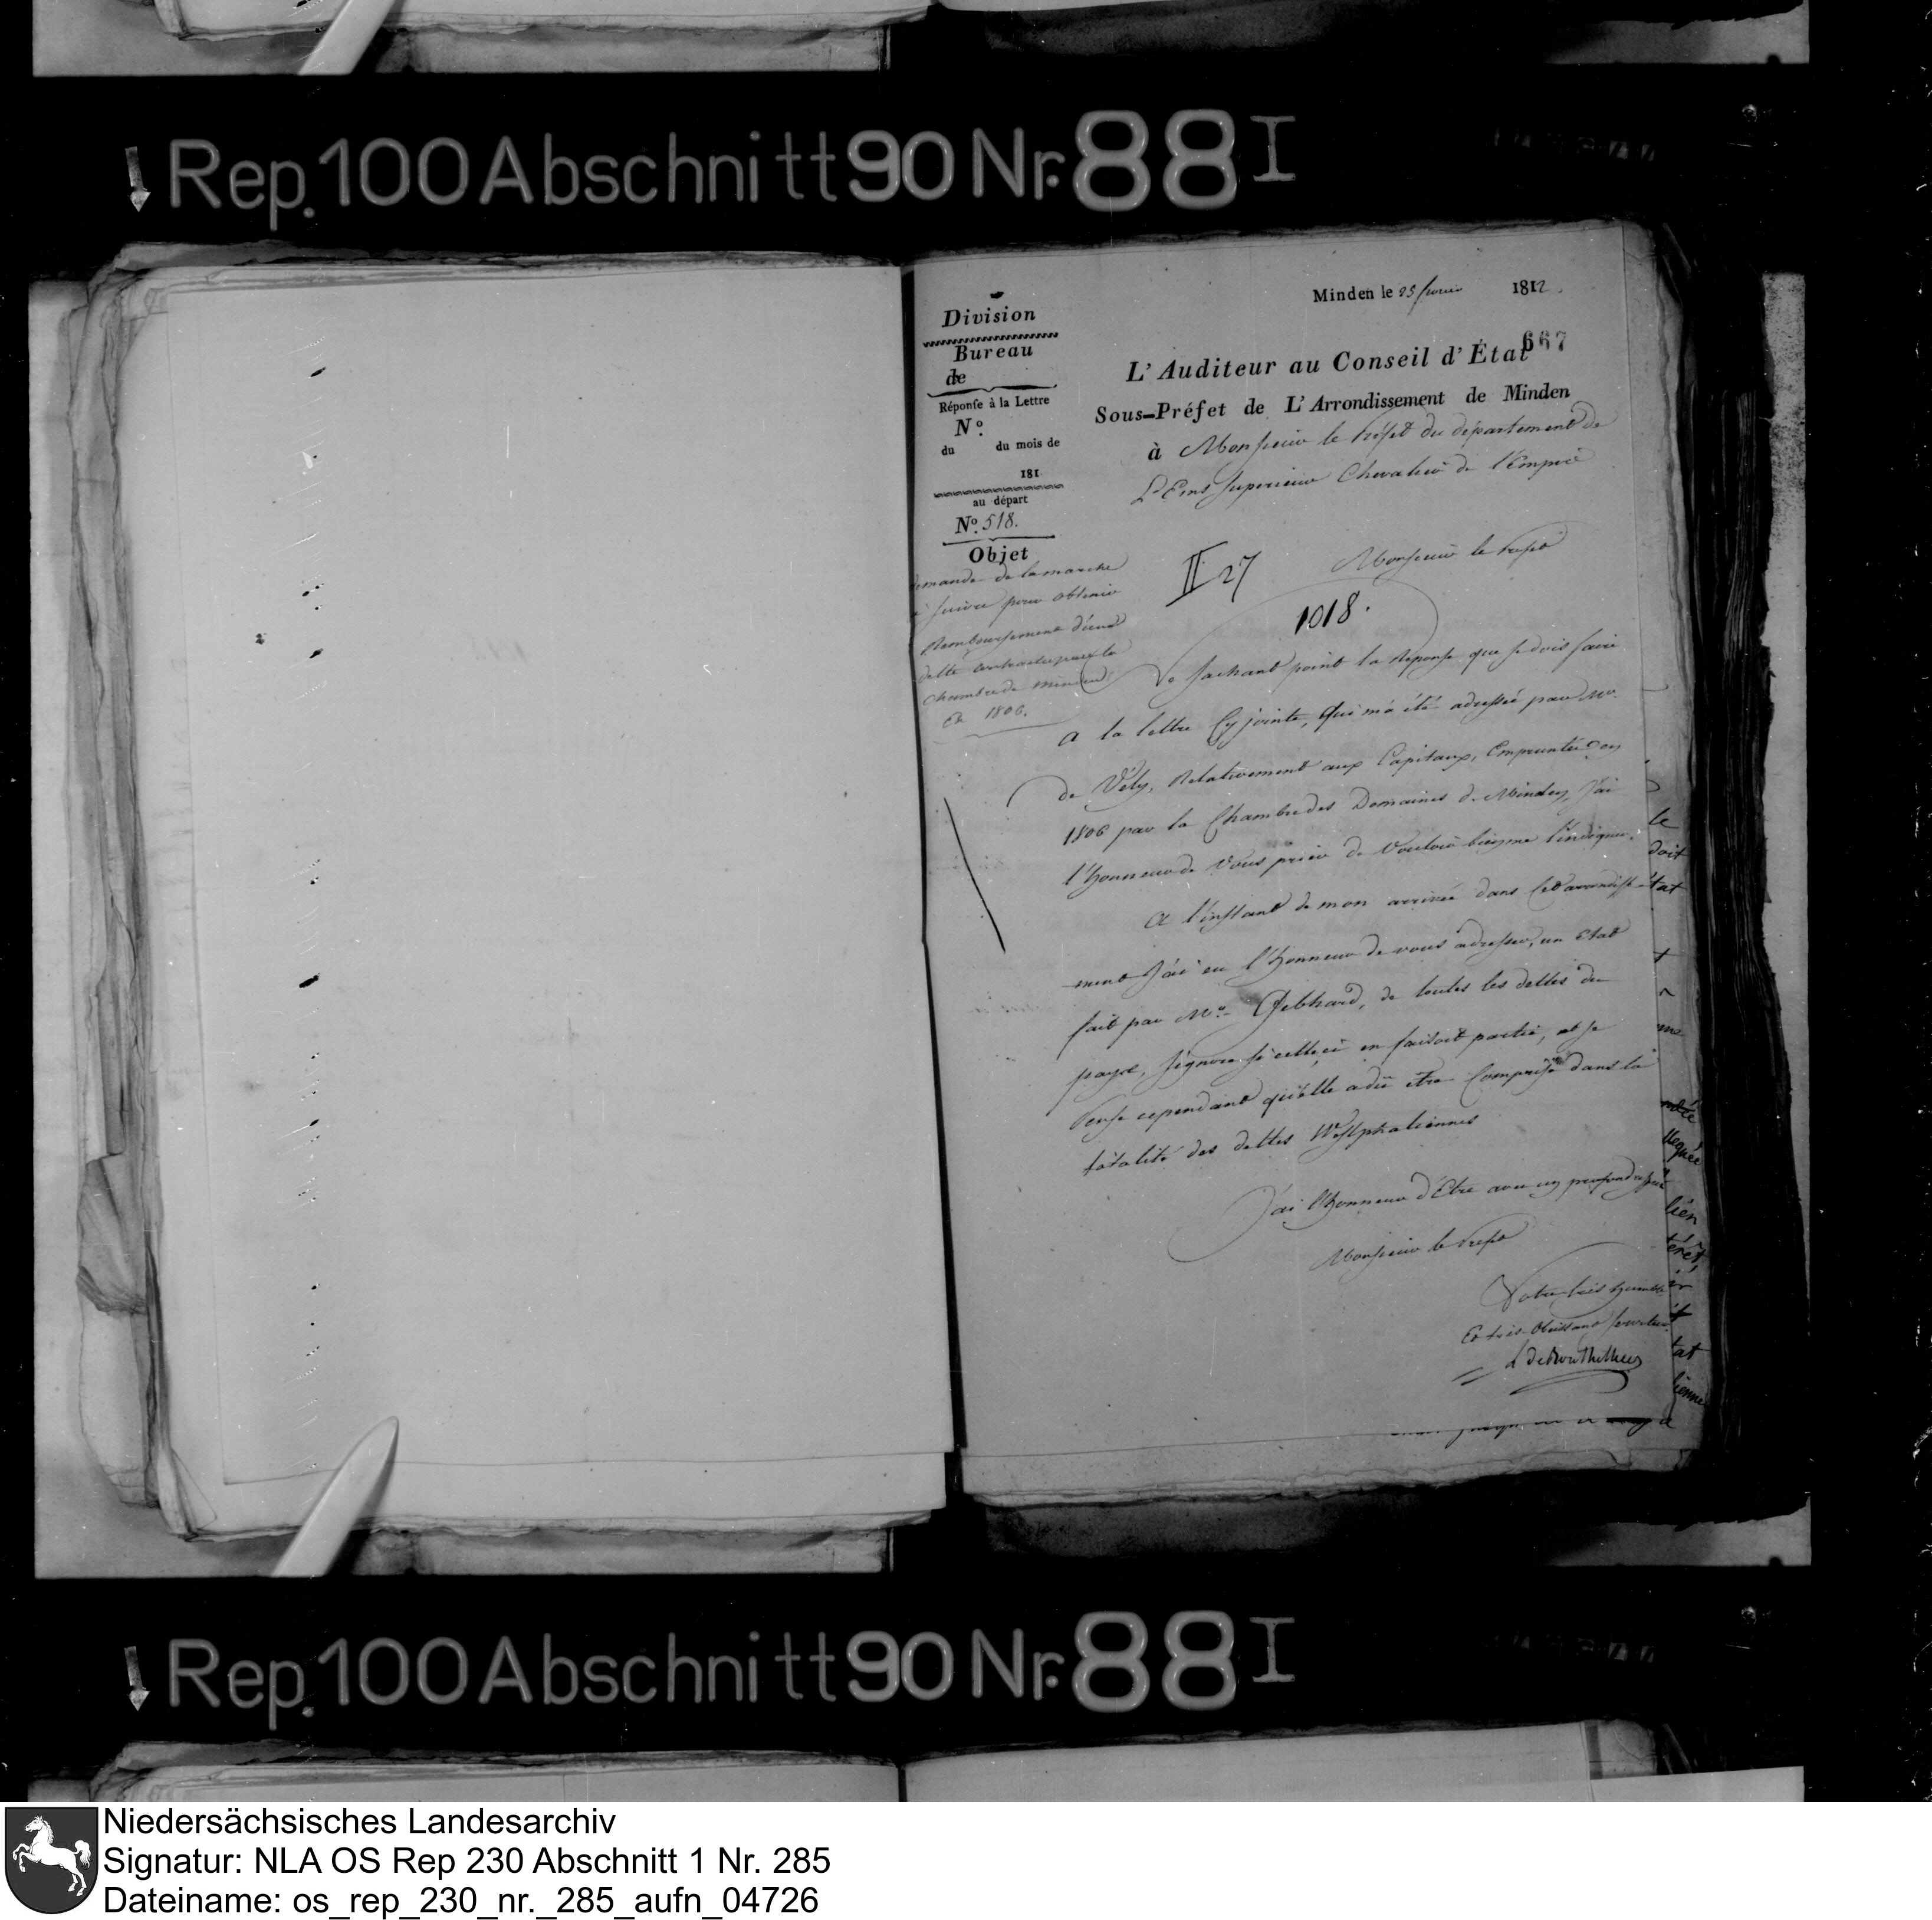 Rep. 100 Abschnitt 90 Nr. 88 I
Minden le 25 fevrier 1812.
667
Division
Bureau
de
Réponse à la Lettre
Nº.
du du mois de
181
au départ
Nº. 518.
Objet
demande de la marche
à suivre pour obtenir
Remboursement d'une
dette contractée par la
Chambre de Minden
En 1806.
L'Auditeur au Conseil d'État
Sous-Préfet de L'Arrondissement de Minden
à Monsieur le Préfet du département de
L'Ems Superieur Chevalier de l'Empire
II 27
Monsieur le Prefet
1018.
Ne sachant point la Réponse que je dois faire
a la lettre Cy jointe, Qui m'a été adressée par Mr.
de Vély, Relativement aux Capitaux, Empruntés en
1806 par la Chambre des Domaines de Minden, J'ai
l'honneur de Vous prier de Vouloir bien me l'indiquer.
A l'instant de mon arrivée dans Cet arrondisse
ment J'ai eu l'honneur de vous adresser, un Etat
fait par Mr. Gebhard, de toutes les dettes du
pays, J'ignore si celle ci en faisoit partie, et je
Pense cependant qu'elle a dû être Comprise dans la
totalité des dettes Westphaliennes
J'ai l'honneur d'Etre avec un profond respect
Monsieur le Prefet
Votre très humble
Et très Obeissant serviteur
le
doit
tat
me
lien
térêt,
tat
Rep. 100 Abschnitt 90 Nr. 88 I
Niedersächsisches Landesarchiv
Signatur: NLA OS Rep 230 Abschnitt 1 Nr. 285
Dateiname: os_rep_230_nr._285_aufn_04726